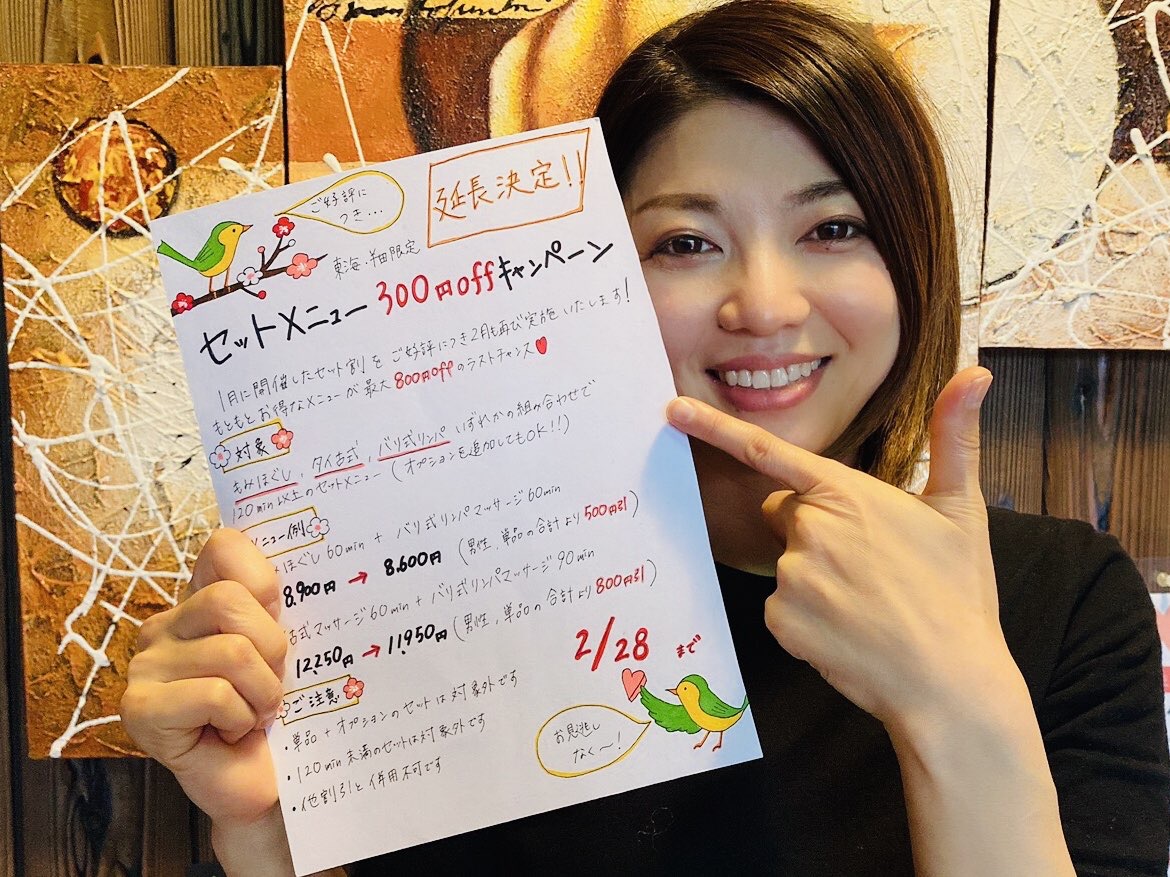 ご好評に
つき...
延長決定!!
東海・半田限定
セットメニュー 300円offキャンペーン
1月に開催したセット割を ご好評につき2月も再び実施いたします!
もともとお得なメニューが最大800円offのラストチャンス
対象
もみほぐし、タイ古式、バリ式リンパ いずれかの組み合わせで
120min以上のセットメニュー(オプションを追加してもOK!!)
ニュー例
ほぐし60min + バリ式リンパマッサージ60min
8,900円 → 8,600円 (男性、単品の合計より500円引)
古式マッサージ60min + バリ式リンパマッサージ90min
12,250円 → 11,950円 (男性、単品の合計より800円引)
2/28 まで
ご注意
・単品+オプションのセットは対象外です
・120min未満のセットは対象外です
・他割引と併用不可です
お見逃し
なく〜!